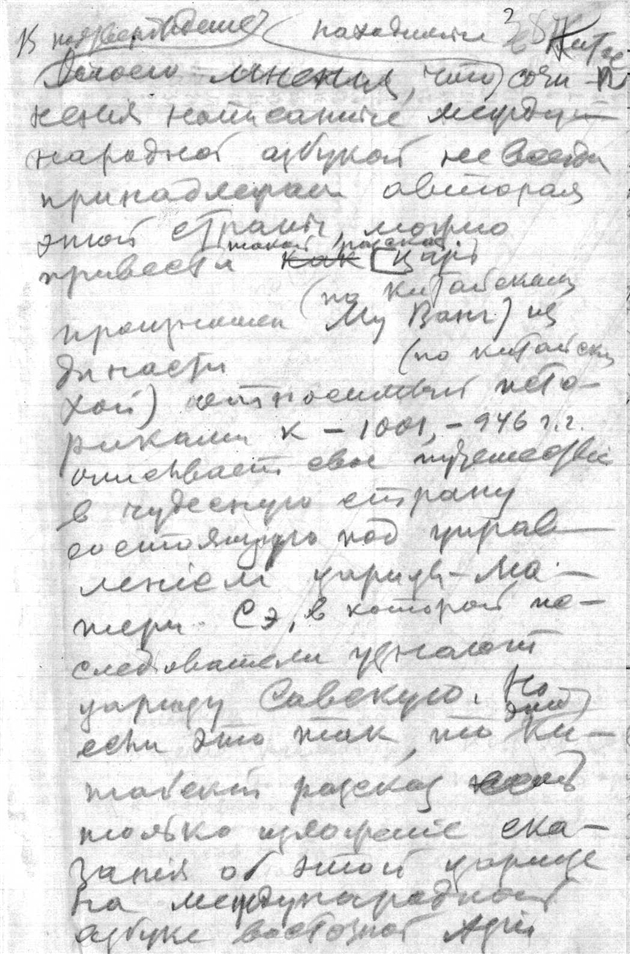 К подтверждению (находимых 387 Китае
моего мнения, что) сочи-
нения написанные между-
народной азбукой не всегда
принадлежат авторам
этой страны, можно
привести как такой рассказ Царь
(по китайским
произношен Му Ванг) из
династи (по китайски
Хой) относимый исто-
риками к – 1001, – 946 г.г.
описывает свое путешествие
в чудесную страну
состоящую под управ-
лением царицы-Ма-
тери Сэ, в которой по-
следователи узнают
царицу Савскую. Но
если это так, то этот Ки-
тайский рассказ есть
только изложение ска-
занiя об этой царице
на международной
азбуке восточной Азiи